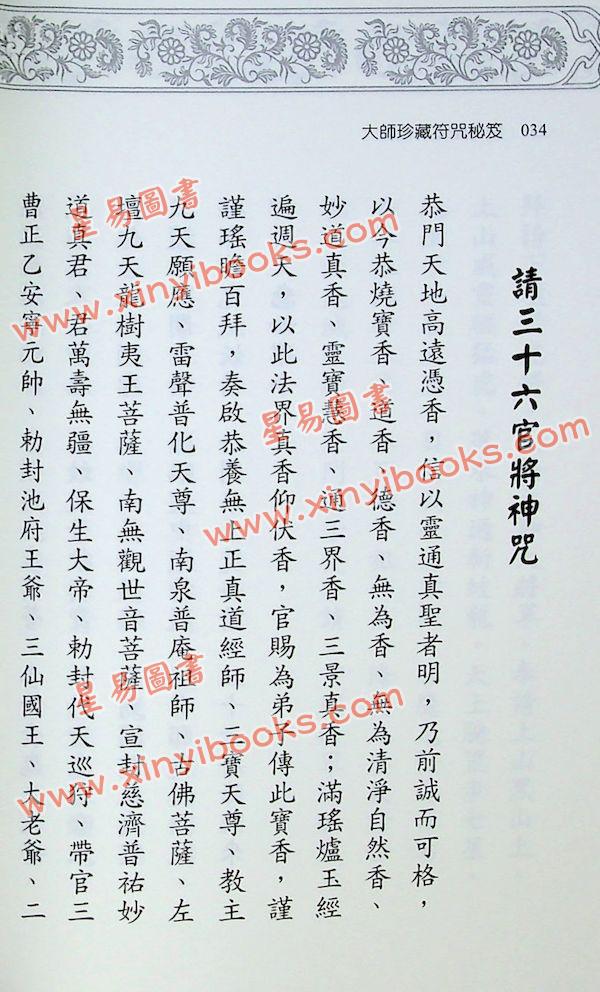 大師珍藏符咒秘笈 034
請三十六官將神咒
恭門天地高遠憑香，信以靈通真聖者明，乃前誠而可格，
以今恭燒寶香、道香、德香、無為香、無為清淨自然香、
妙道真香、靈寶慧香、通三界香、三景真香；滿瑤爐玉經
遍週天，以此法界真香仰伏香，官賜為弟子傳此寶香，謹
謹瑤瞻百拜，奏啟恭養無上正真道經師、三寶天尊、教主
九天願應、雷聲普化天尊、南泉普庵祖師、古佛菩薩、左
壇九天龍樹夷王菩薩、南無觀世音菩薩、宣封慈濟普祐妙
道真君、君萬壽無疆、保生大帝、勅封代天巡狩、帶官三
曹正乙安寧元帥、勅封池府王爺、三仙國王、大老爺、二
星易圖書
www.xinyibooks.com
星易圖書
www.xinyibooks.com
星易圖書
www.xinyibooks.com